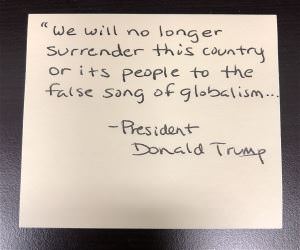 "We will no longer
surrender this country
or its people to the
false song of globalism...
-President
Donald Trump